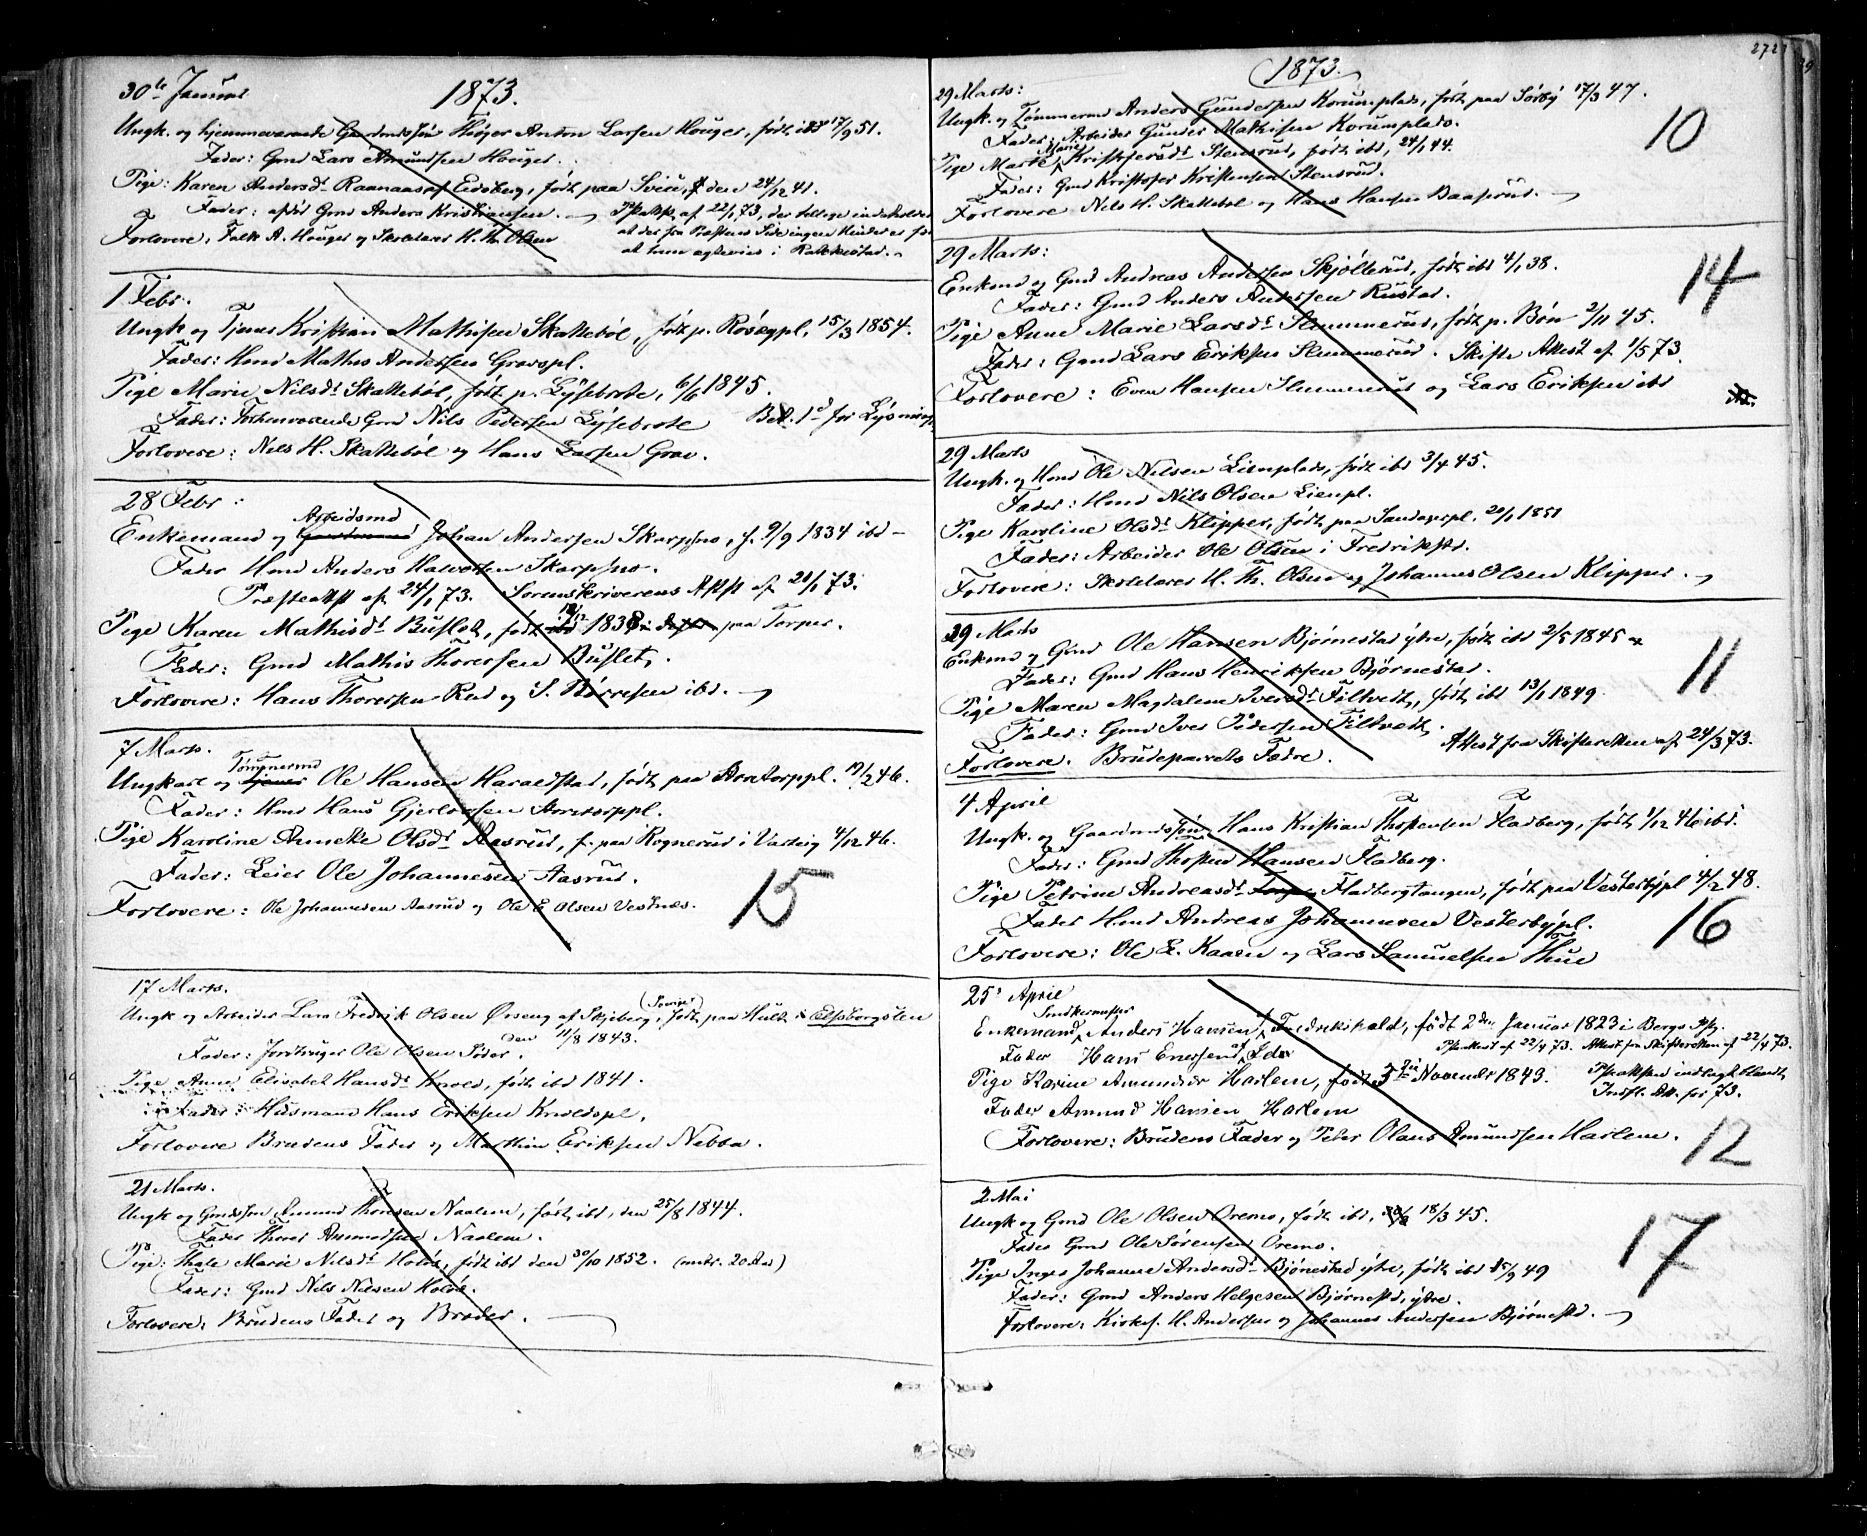 30te Januar
1873.
Ungk. og hjemmeværende Gaardmdssön Höyer Anton Larsen Houger, födt ibd 17/9 51.
Fader: Gmd Lars Amundsen Houger.
Pige: Karen Andersdt Raanaas af Eidsberg, födt paa den 24/12 41.
Fader: afdöd Gmd Anders Kristiansen. Pstattst. af 22/1 73, der tillige indeholder
Forlovere, Falk A. Houger og Skolelærer H. Th. Olsen
at der fra Præstens Side ingen Hinder er for
at han egtevies i Rakkestad.
1 Febr.
Ungk og Tjener Kristian Mathisen Skatteböl, födt p. Rösægpl. 15/3 1854.
Fader: Hmd Mathis Andersen Gravspl.
Pige Marie Nilsdt Skatteböl, födt p. Lysebraate, 6/6 1845.
Fader: Forhenværende Gmd Nils Pedersen Lysebrote Bet. 1d for Lysning
Forlovere: Nils H. Skatteböl og Hans Larsen Grav.
28 Febr:
Enkemand og Arbeidsmd Johan Andersen Skarpsno, f. 9/9 1834 ibd
Fader Hmd Anders Halvorsen Skarpsno.
Præsteattst af 24/1 73. Sorenskriverens Attst af 20/1 73.
Pige Karen Mathisdt Buslet, födt 1838 paa Torper.
Fader: Gmd Mathis Thoresen Buslet.
Forlovere: Hans Thoresen Rud og S. Börresen ibd.
7 Marts.
Ungkarl og Tömmermd Ole Hansen Haraldstad, födt paa Aaretorppl. 17/2 46.
Fader: Hmd Hans Gjerlovsen Aaretorppl.
Pige Karoline Anneke Olsdt Aasrud, f. paa Rognerud i Varteig 4/12 46.
Fader: Leier Ole Johannesen Aasrud.
Forlovere: Ole Johannesen Aasrud og Ole E. Olsen Vestnæs.
15
17 Marts.
Ungk og Arbeider Lars Fredrik Olsen Örseng af Skjeberg, födt paa Hult i Elfsborgslen (Sverige)
den 11/8 1843.
Fader: Jordbruger Ole Olsen
Pige Anne Elisabet Hansdt Knold, födt ibd 1841.
Fader: Husmand Hans Eriksen Knoldspl.
Forlovere Brudens Fader og Marthin Eriksen Nebba.
21 Marts.
Ungk og Gmdssön Amund Thoresen Naalum, födt ibd, den 25/8 1844.
Fader Thores Amundsen Naalum.
Pige: Thale Marie Nilsdt Holöe, födt ibd den 30/10 1852. (omtr. 20 Aar)
Fader: Gmd Nils Nilsen Holöe.
Forlovere: Brudens Fader og Broder.
272
1873.
29 Marts:
Ungk. og Tömmermd Anders Gundersen Korumplads, födt paa Sörby 17/3 47.
Fader: Arbeider Gunder Mathisen Korumplads.
Pige Marte Marie Kristofersdt Stensrud, födt ibd, 24/1 44.
Fader: Gmd Kristofer Kristensen Stensrud.
Forlovere Nils H. Skatteböl og Hans Hansen Baasrud.
10
29 Marts:
Enkemd og Gmd Andreas Andersen Skjöllerud, födt ibd 4/1 38.
Fader: Gmd Anders Andersen Rustad.
Pige Anne Marie Larsdt Slemmerud, födt p. Bön 2/11 45.
Fader: Gmd Lars Eriksen Slemmerud. Skifte Attest af 1/5 73.
Forlovere: Even Hansen Slemmerud og Lars Eriksen ibd
14
29 Marts
Ungk. og Hmd Ole Nilsen Lienplads, födt ibd 3/4 45.
Fader: Hmd Nils Olsen Lienpl.
Pige Karoline Olsdt Klipper, födt paa Sandagerpl. 20/1 1851
Fader: Arbeider Ole Olsen i Fredrikstd.
Forlovere: Skolelærer H. Th. Olsen og Johannes Olsen Klipper.
29 Marts
Enkemd og Gmd Ole Hansen Björnestad ytre, födt ibd 2/5 1845
Fader: Gmd Hans Henriksen Björnestad.
Pige Maren Magdalene Iversdt Filtvedt, födt ibd 13/1 1849.
Fader: Gmd Iver Pedersen Filtvedt.
Attest fra Skifteretten af 24/3 73.
Forlovere. Brudeparrets Fædre.
11
4 April
Ungk. og Gaardmdssön Hans Kristian Thostensen Fladberg, födt 1/12 46 ibd.
Fader: Gmd Thosten Hansen Fladberg.
Pige Petrine Andreasdt Fladbergtangen, födt paa Vesterbypl 4/2 48.
Fader Hmd Andreas Johannesen Vesterbypl.
Forlovere: Ole E. Kaasen og Lars Samuelsen Thue
16
25' April
Enkemand, Snedkermester Anders Hansen af Fredrikshald, födt 2den Januar 1823 i Bergs Psg.
Fader Hans Enersen af Idde
Psattest af 22/4 73. Attest fra Skifteretten af 22/4 73.
Pige Karine Amundsdt Harlem, födt 5te November 1849.
Fader Amund Hansen Harlem
Forlovere: Brudens Fader og Peter Olaus Amundsen Harlem.
12
2 Mai
Ungk og Gmd Ole Olsen Oremo, födt ibd, 18/3 45.
Fader Gmd Ole Sörensen Oremo.
Pige Inger Johanne Andersdt Björnestad ytre, födt ibd 15/9 49
Fader: Gmd Anders Helgesen Björnestd. ytre.
Forlovere: Kirkes. H. Andersen og Johannes Andersen Björnestd.
17